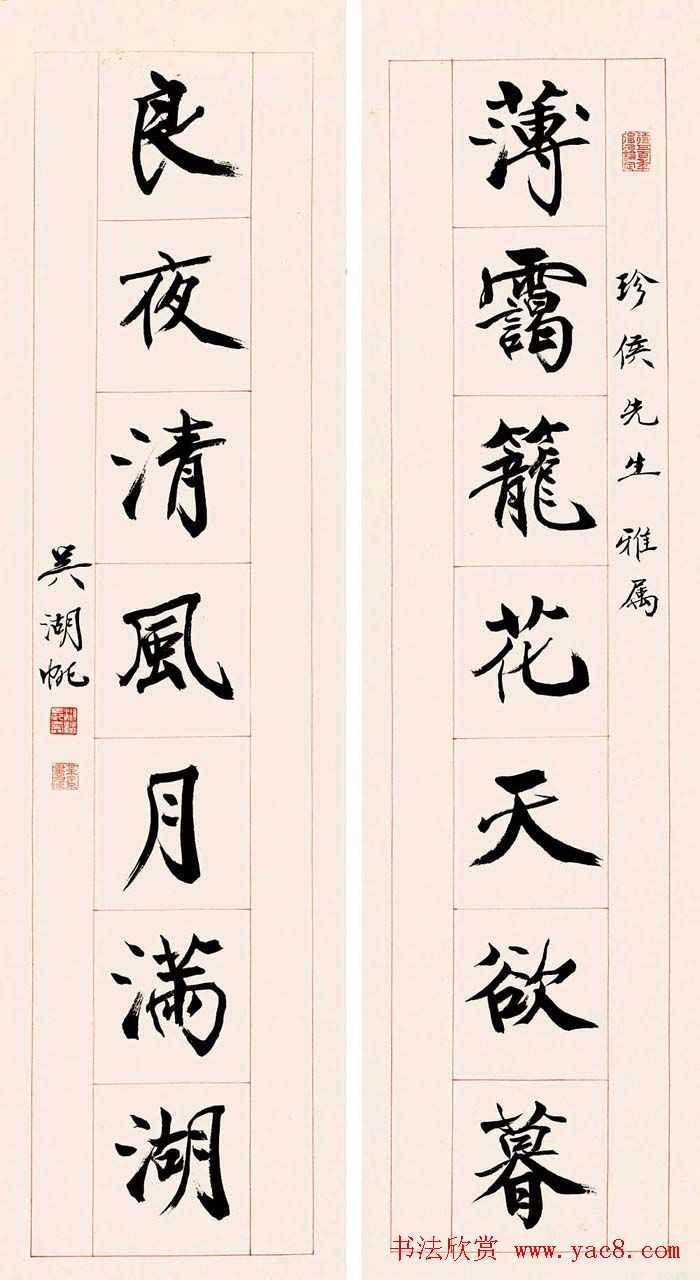 珍侯先生雅属
薄靄籠花天欲暮
良夜清風月滿湖
吳湖帆
书法欣赏 www.yac8.com